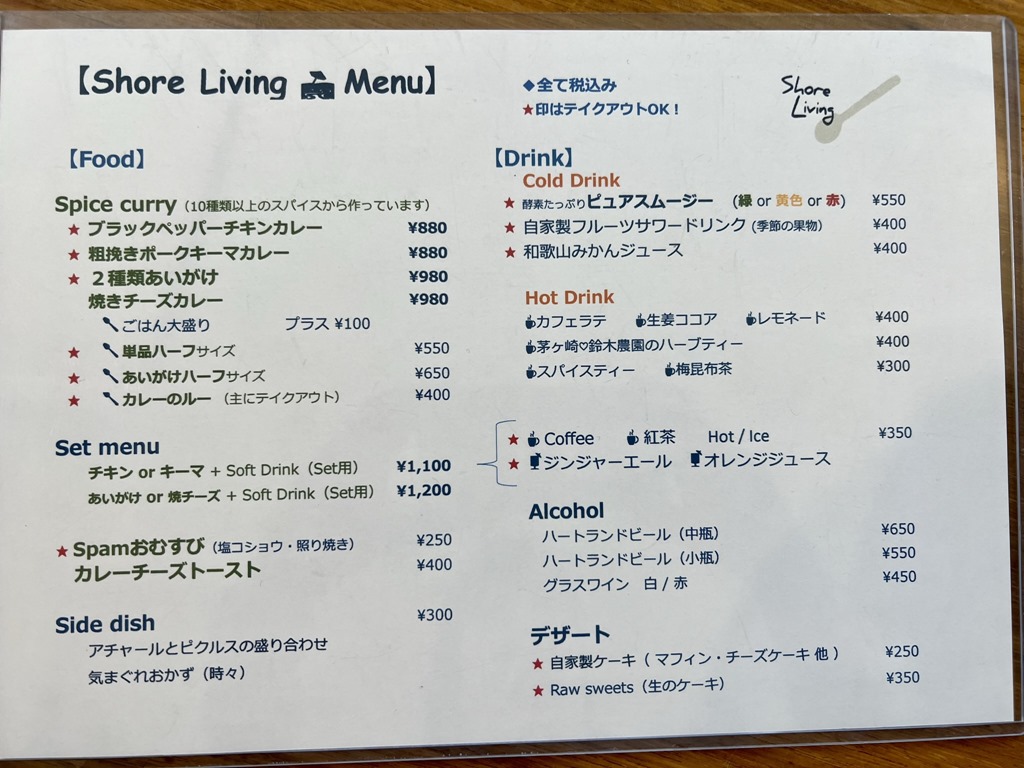 【Shore Living Menu】
◆全て税込み
★印はテイクアウトOK！
Shore
Living
【Food】
Spice curry（10種類以上のスパイスから作っています）
★ ブラックペッパーチキンカレー ¥880
★ 粗挽きポークキーマカレー ¥880
★ ２種類あいがけ ¥980
焼きチーズカレー ¥980
ごはん大盛り プラス ¥100
★ 単品ハーフサイズ ¥550
★ あいがけハーフサイズ ¥650
★ カレーのルー （主にテイクアウト） ¥400
Set menu
チキン or キーマ + Soft Drink（Set用） ¥1,100
あいがけ or 焼チーズ + Soft Drink（Set用） ¥1,200
★ Spamおむすび（塩コショウ・照り焼き） ¥250
カレーチーズトースト ¥400
Side dish ¥300
アチャールとピクルスの盛り合わせ
気まぐれおかず（時々）
【Drink】
Cold Drink
★ 酵素たっぷりピュアスムージー （緑 or 黄色 or 赤） ¥550
★ 自家製フルーツサワードリンク（季節の果物） ¥400
★ 和歌山みかんジュース ¥400
Hot Drink
カフェラテ 生姜ココア レモネード ¥400
茅ヶ崎♡鈴木農園のハーブティー ¥400
スパイスティー 梅昆布茶 ¥300
★ Coffee 紅茶 Hot / Ice ¥350
★ ジンジャーエール オレンジジュース
Alcohol
ハートランドビール（中瓶） ¥650
ハートランドビール（小瓶） ¥550
グラスワイン 白 / 赤 ¥450
デザート
★ 自家製ケーキ（ マフィン・チーズケーキ 他 ） ¥250
★ Raw sweets（生のケーキ） ¥350